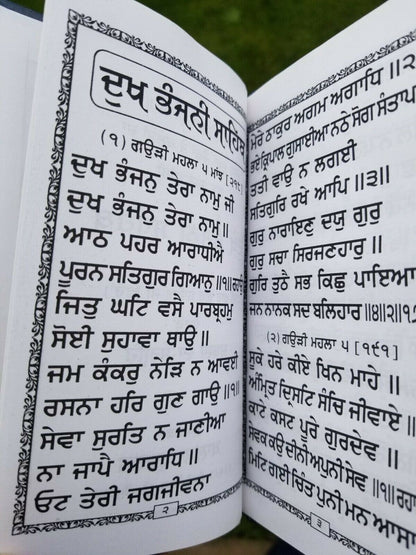 ਦੁਖ ਭੰਜਨੀ ਸਾਹਿਬ
(੧) ਗਉੜੀ ਮਹਲਾ ੫ ਮਾਂਝ [੨੧੮]
ਦੁਖ ਭੰਜਨੁ ਤੇਰਾ ਨਾਮੁ ਜੀ
ਦੁਖ ਭੰਜਨੁ ਤੇਰਾ ਨਾਮੁ॥
ਆਠ ਪਹਰ ਆਰਾਧੀਐ
ਪੂਰਨ ਸਤਿਗੁਰ ਗਿਆਨੁ॥੧॥ਰਹਾਉ
ਜਿਤੁ ਘਟਿ ਵਸੈ ਪਾਰਬ੍ਰਹਮੁ
ਸੋਈ ਸੁਹਾਵਾ ਥਾਉ॥
ਜਮ ਕੰਕਰੁ ਨੇੜਿ ਨ ਆਵਈ
ਰਸਨਾ ਹਰਿ ਗੁਣ ਗਾਉ॥੧॥
ਸੇਵਾ ਸੁਰਤਿ ਨ ਜਾਣੀਆ
ਨਾ ਜਾਪੈ ਆਰਾਧਿ॥
ਓਟ ਤੇਰੀ ਜਗਜੀਵਨਾ
੨
ਮੇਰੇ ਠਾਕੁਰ ਅਗਮ ਅਗਾਧਿ॥੨
ਭਏ ਕ੍ਰਿਪਾਲ ਗੁਸਾਈਆ ਨਠੇ ਸੋਗ ਸੰਤਾਪ
ਤਤੀ ਵਾਉ ਨ ਲਗਈ
ਸਤਿਗੁਰਿ ਰਖੇ ਆਪਿ॥੩॥
ਗੁਰੁ ਨਾਰਾਇਣੁ ਦਯੁ ਗੁਰੁ
ਗੁਰੁ ਸਚਾ ਸਿਰਜਣਹਾਰੁ॥
ਗੁਰਿ ਤੁਠੈ ਸਭ ਕਿਛੁ ਪਾਇਆ
ਜਨ ਨਾਨਕ ਸਦ ਬਲਿਹਾਰ॥੪॥੨॥੧੭
(੨) ਗਉੜੀ ਮਹਲਾ ੫ [੧੯੧]
ਸੂਕੇ ਹਰੇ ਕੀਏ ਖਿਨ ਮਾਹੇ॥
ਅੰਮ੍ਰਿਤ ਦ੍ਰਿਸਟਿ ਸੰਚਿ ਜੀਵਾਏ॥
ਕਾਟੇ ਕਸਟ ਪੂਰੇ ਗੁਰਦੇਵ॥
ਸੇਵਕ ਕਉ ਦੀਨੀ ਅਪੁਨੀ ਸੇਵ॥੧॥ਰਹਾ
ਮਿਟਿ ਗਈ ਚਿੰਤ ਪੁਨੀ ਮਨ ਆਸਾ
੩